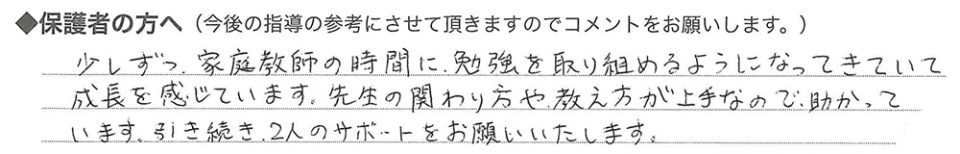 ◆保護者の方へ（今後の指導の参考にさせて頂きますのでコメントをお願いします。）
少しずつ、家庭教師の時間に、勉強を取り組めるようになってきていて
成長を感じています。先生の関わり方や、教え方が上手なので、助かって
います。引き続き、2人のサポートをお願いいたします。